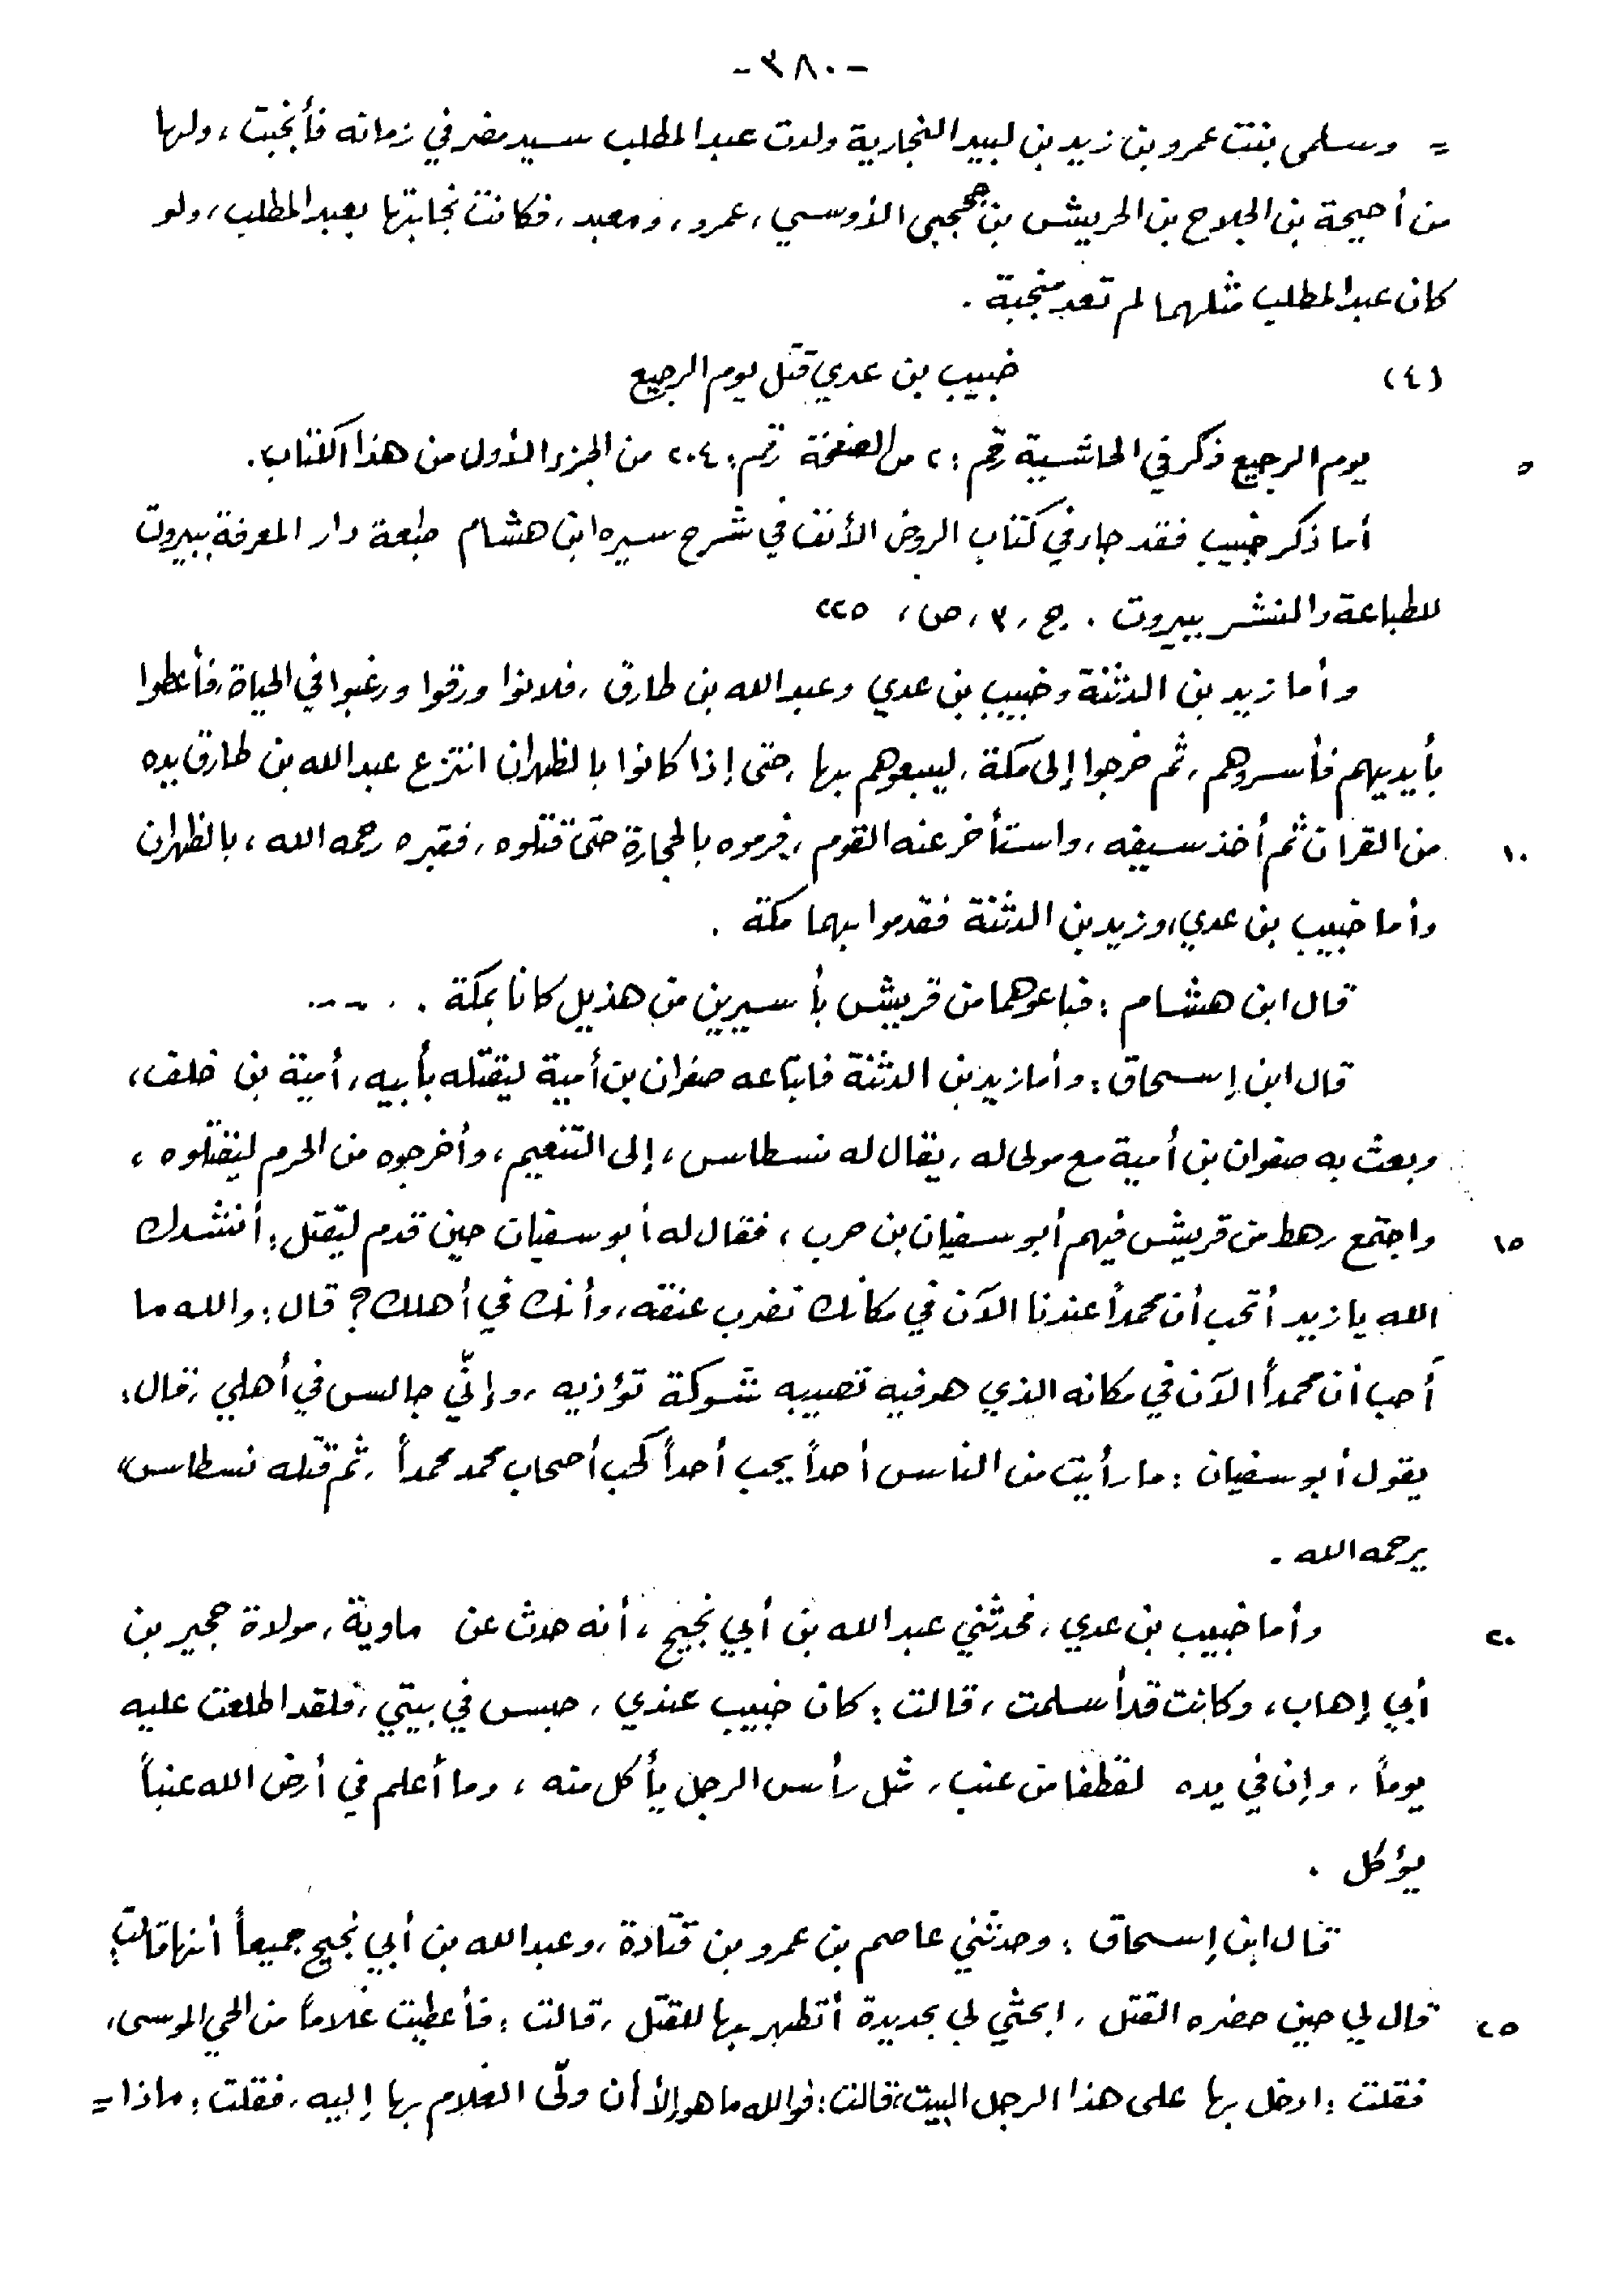 -٣٨٠-
= وسلمى بنت عمرو بن زيد بن لبيد النجارية ولدت عبد المطلب سيد مضر في زمانه فأنجبت، ولها
من أحيحة بن الجلاح بن الحريش بن جحجبى الأوسي، عمرو، ومعبد، فكانت نجابتها بعبد المطلب، ولو
كان عبد المطلب مثلهما لم تعد منجبة.
(٤) خبيب بن عدي قتل يوم الرجيع
٥ يوم الرجيع ذكر في الحاشية رقم: ٢ من الصفحة رقم: ٢٠٤ من الجزء الأول من هذا الكتاب.
أما ذكر خبيب فقد جاء في كتاب الروض الأنف في شرح سيره ابن هشام طبعة دار المعرفة ببيروت
للطباعة والنشر ببيروت. ج، ٣، ص، ٢٢٥
وأما زيد بن الدثنة وخبيب بن عدي وعبد الله بن طارق، فلانوا ورقوا ورغبوا في الحياة، فأعطوا
بأيديهم فأسروهم، ثم خرجوا إلى مكة، ليبيعوهم بها، حتى إذا كانوا بالظهران انتزع عبد الله بن طارق يده
١٠ من القران ثم أخذ سيفه، واستأخر عنه القوم، فرموه بالحجارة حتى قتلوه، فقبره رحمه الله، بالظهران
وأما خبيب بن عدي، وزيد بن الدثنة فقدموا بهما مكة.
قال ابن هشام: فباعوهما من قريش بأسيرين من هذيل كانا بمكة. ....
قال ابن إسحاق: وأما زيد بن الدثنة فابتاعه صفوان بن أمية ليقتله بأبيه، أمية بن خلف،
وبعث به صفوان بن أمية مع مولى له، يقال له نسطاس، إلى التنعيم، وأخرجوه من الحرم ليقتلوه،
١٥ واجتمع رهط من قريش فيهم أبو سفيان بن حرب، فقال له أبو سفيان حين قدم ليقتل: أنشدك
الله يا زيد أتحب أن محمداً عندنا الآن في مكانك تضرب عنقه، وأنك في أهلك؟ قال: والله ما
أحب أن محمداً الآن في مكانه الذي هو فيه تصيبه شوكة تؤذيه، وإنّي جالس في أهلي، قال:
يقول أبو سفيان: ما رأيت من الناس أحداً يحب أحداً كحب أصحاب محمد محمداً، ثم قتله نسطاس،
يرحمه الله.
٢٠ وأما خبيب بن عدي، فحدثني عبد الله بن أبي نجيح، أنه حدث عن ماوية، مولاة حجير بن
أبي إهاب، وكانت قد أسلمت، قالت: كان خبيب عندي، حبس في بيتي، فلقد اطلعت عليه
يوماً، وإن في يده لقطفا من عنب، مثل رأس الرجل يأكل منه، وما أعلم في أرض الله عنباً
يؤكل.
قال ابن إسحاق: وحدثني عاصم بن عمرو بن قتادة، وعبد الله بن أبي نجيح جميعاً أنها قالت:
٢٥ قال لي حين حضره القتل، ابعثي لي بحديدة أتطهر بها للقتل، قالت: فأعطيت غلاماً من الحي الموسى،
فقلت: ادخل بها على هذا الرجل البيت، قالت: فوالله ما هو إلا أن ولّى الغلام بها إليه، فقلت: ماذا =